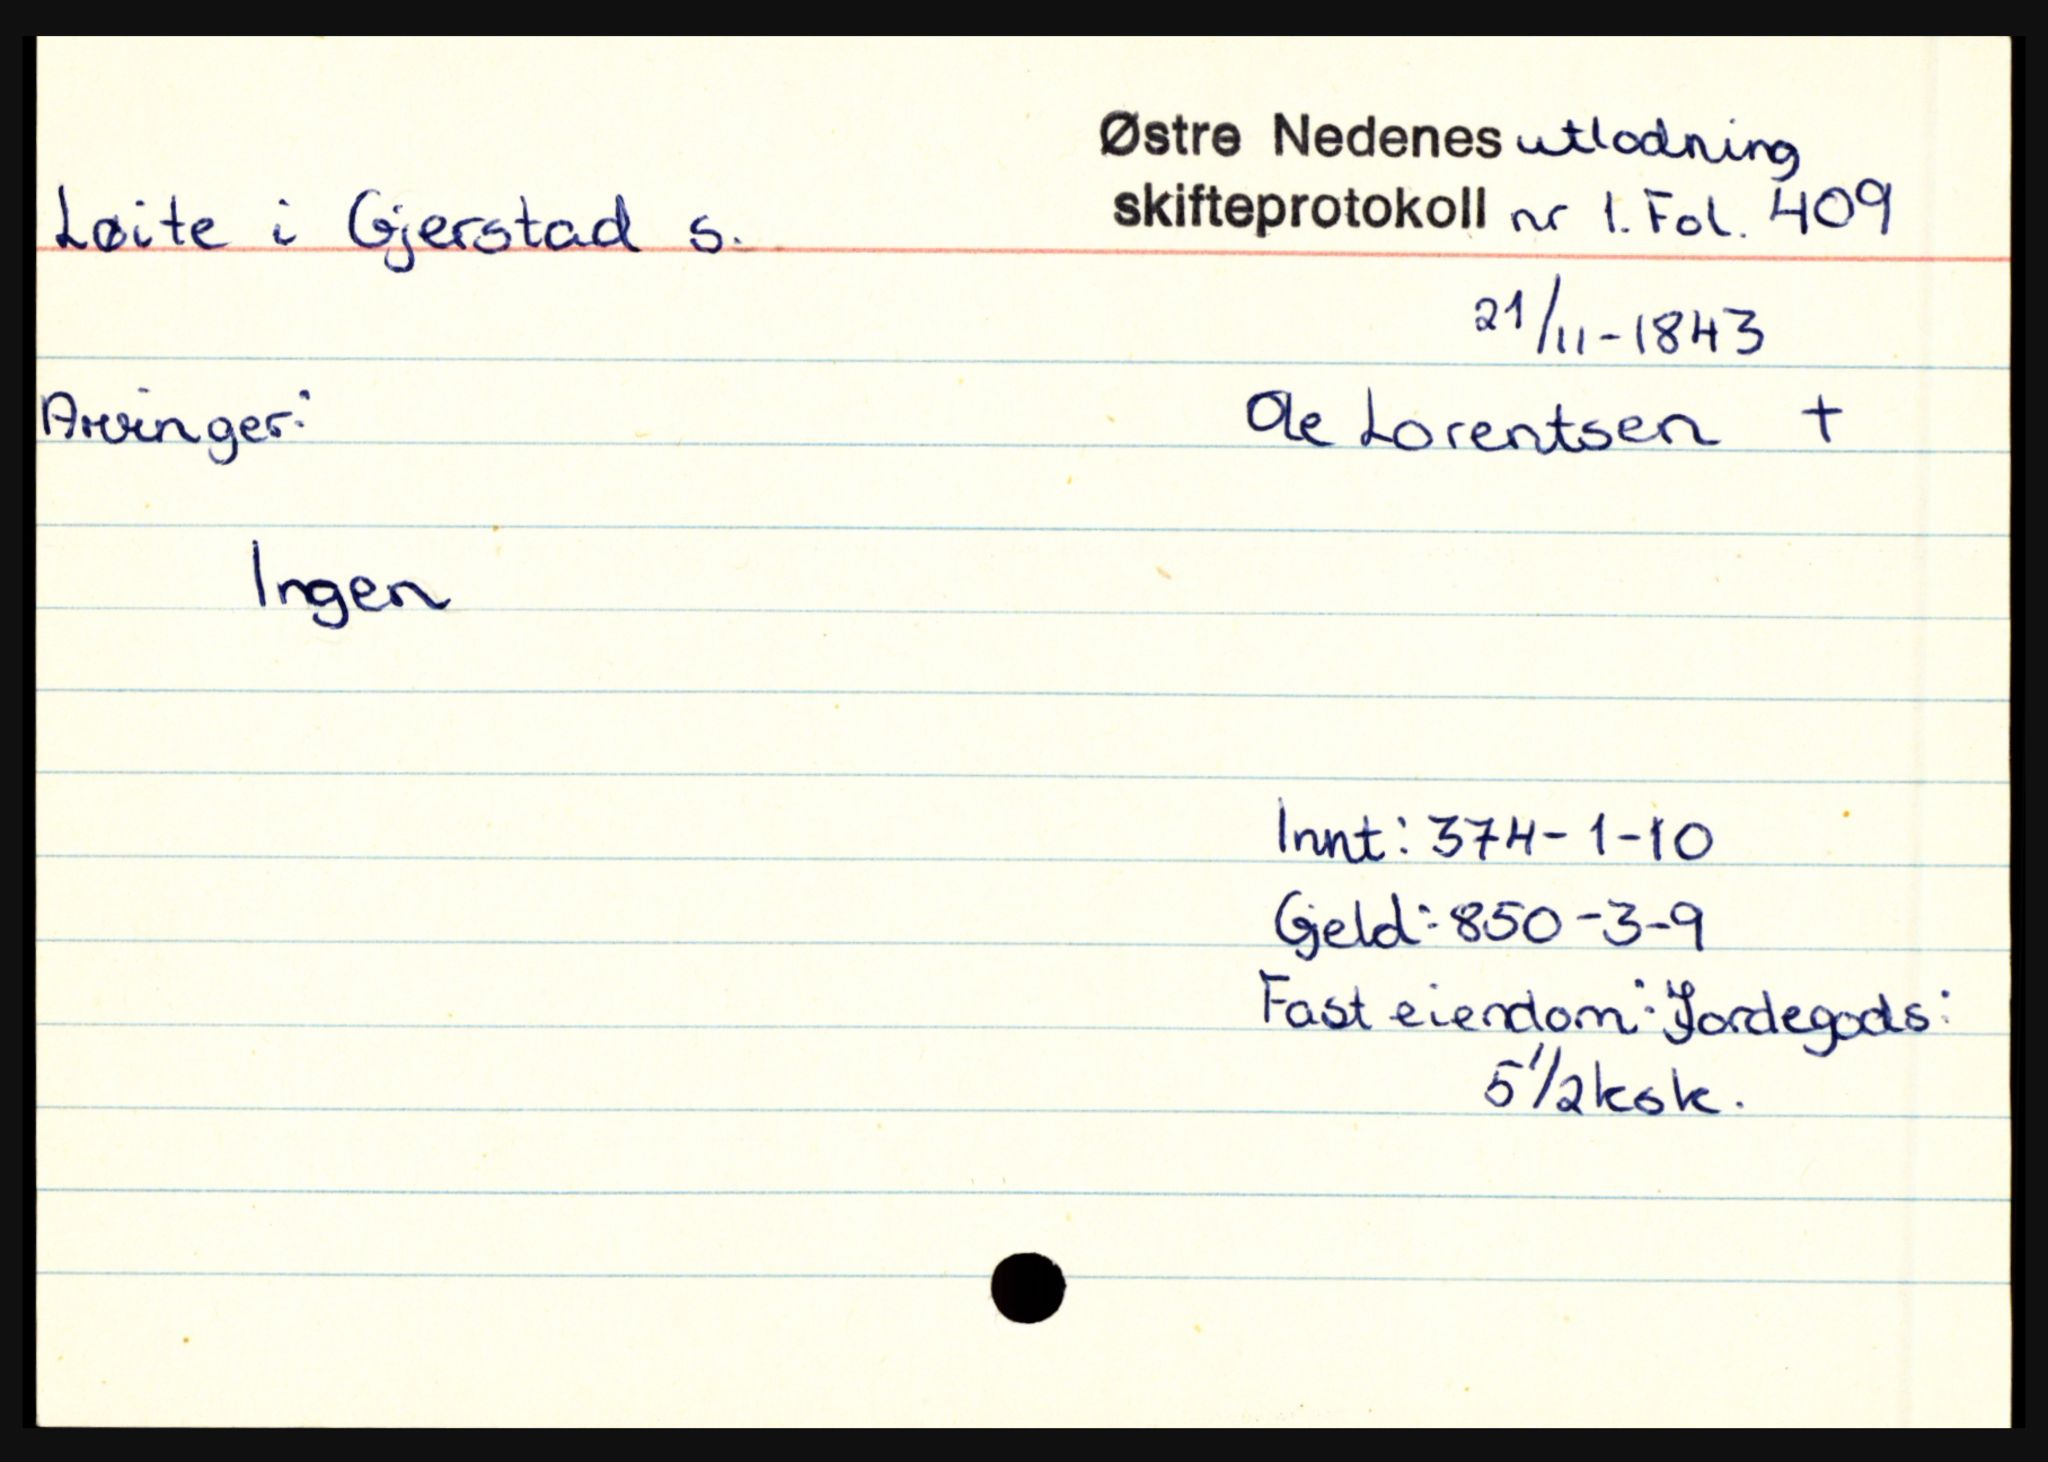 Østre Nedenes utlodning
Løite i Gjerstad s. skifteprotokoll nr 1. Fol. 409
21/11-1843
Arvinger: Ole Lorentsen +
Ingen
Innt: 374-1-10
Gjeld: 850-3-9
Fast eiendom: Jordegods:
5 1/2 ksk.